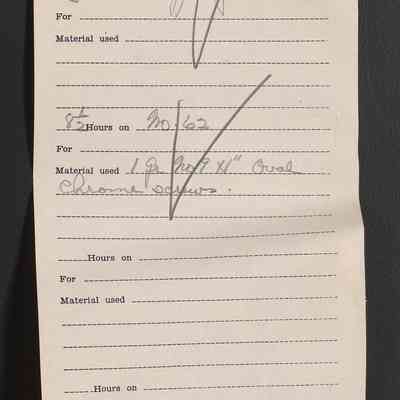 For
Material used
8 1/2 Hours on No 62
For
Material used 1 Gr No 9 X 1" Oval
Chrome screws.
Hours on
For
Material used
Hours on